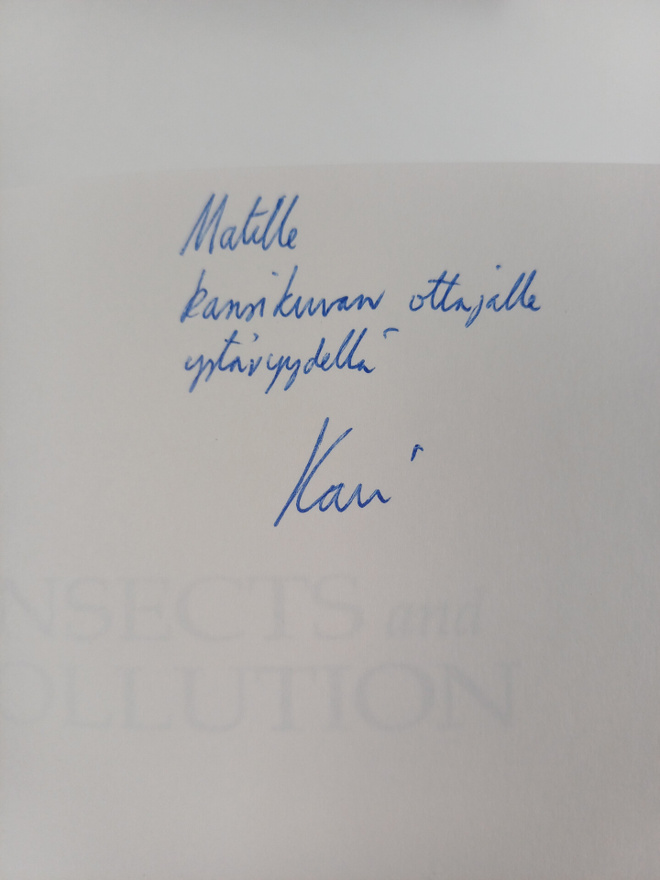 Matille
kansikuvan ottajalle
ystävyydellä
Kari
NSECTS and
OLLUTION